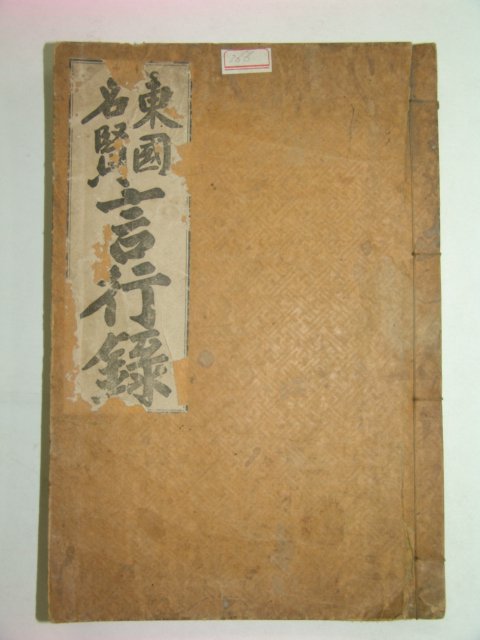 東國
名賢
言行錄